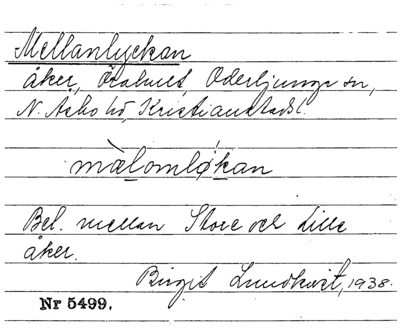 Mellanlyckan
åker, Oderljunga sn,
N. Åsbo hd, Kristianstads l.
mælomløkan
Bel. mellan Store och Lille
åker.
Birgit Lundkvist, 1938.
Nr 5499.